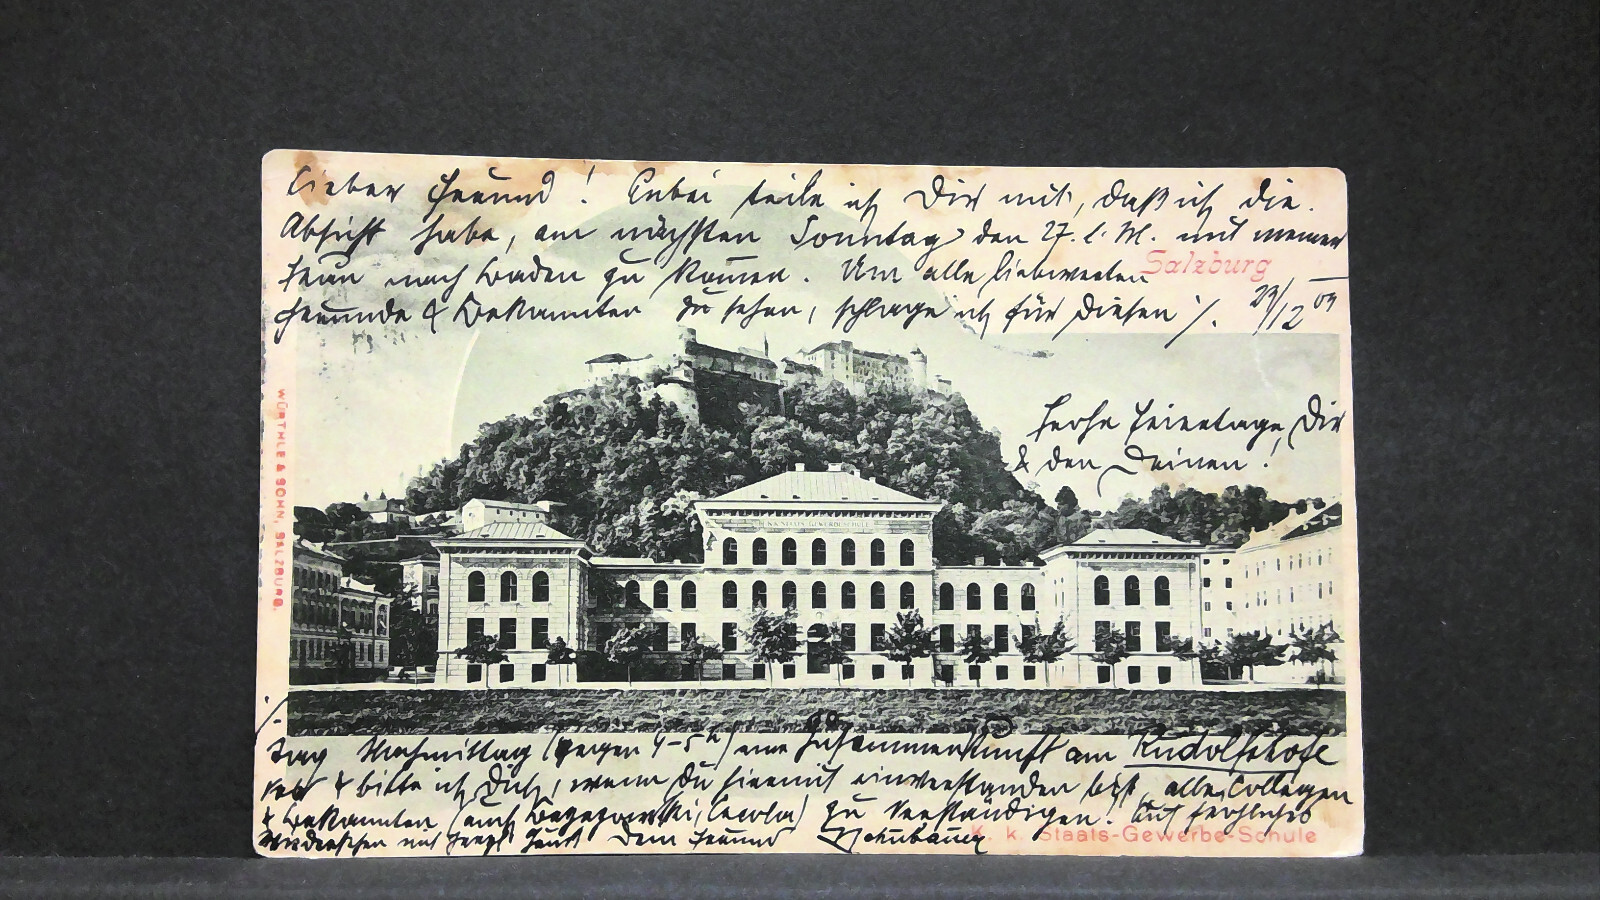 Lieber Freund! Anbei teile ich Dir mit, daß ich die
Absicht habe, am nächsten Sonntag den 27. l. M. mit meiner
Frau nach Baden zu kommen. Um alle liebwerten
Salzburg
Freunde & Bekannten zu sehen, schlage ich für diesen ·/.
23/12 09
Frohe Feiertage, Dir
& den Deinen!
WÜRTHLE & SOHN, SALZBURG.
K.K. STAATS-GEWERBESCHULE
·/.
Tag Nachmittag (gegen 4-5h) eine Zusammenkunft am Rudolfshofe
& bitte ich Dich, wenn Du hiermit einverstanden bist, alle Collegen
& Bekannten (auch zu verständigen! Auf fröhliches
Wiedersehen mit Dein Freund
K. k. Staats-Gewerbe-Schule